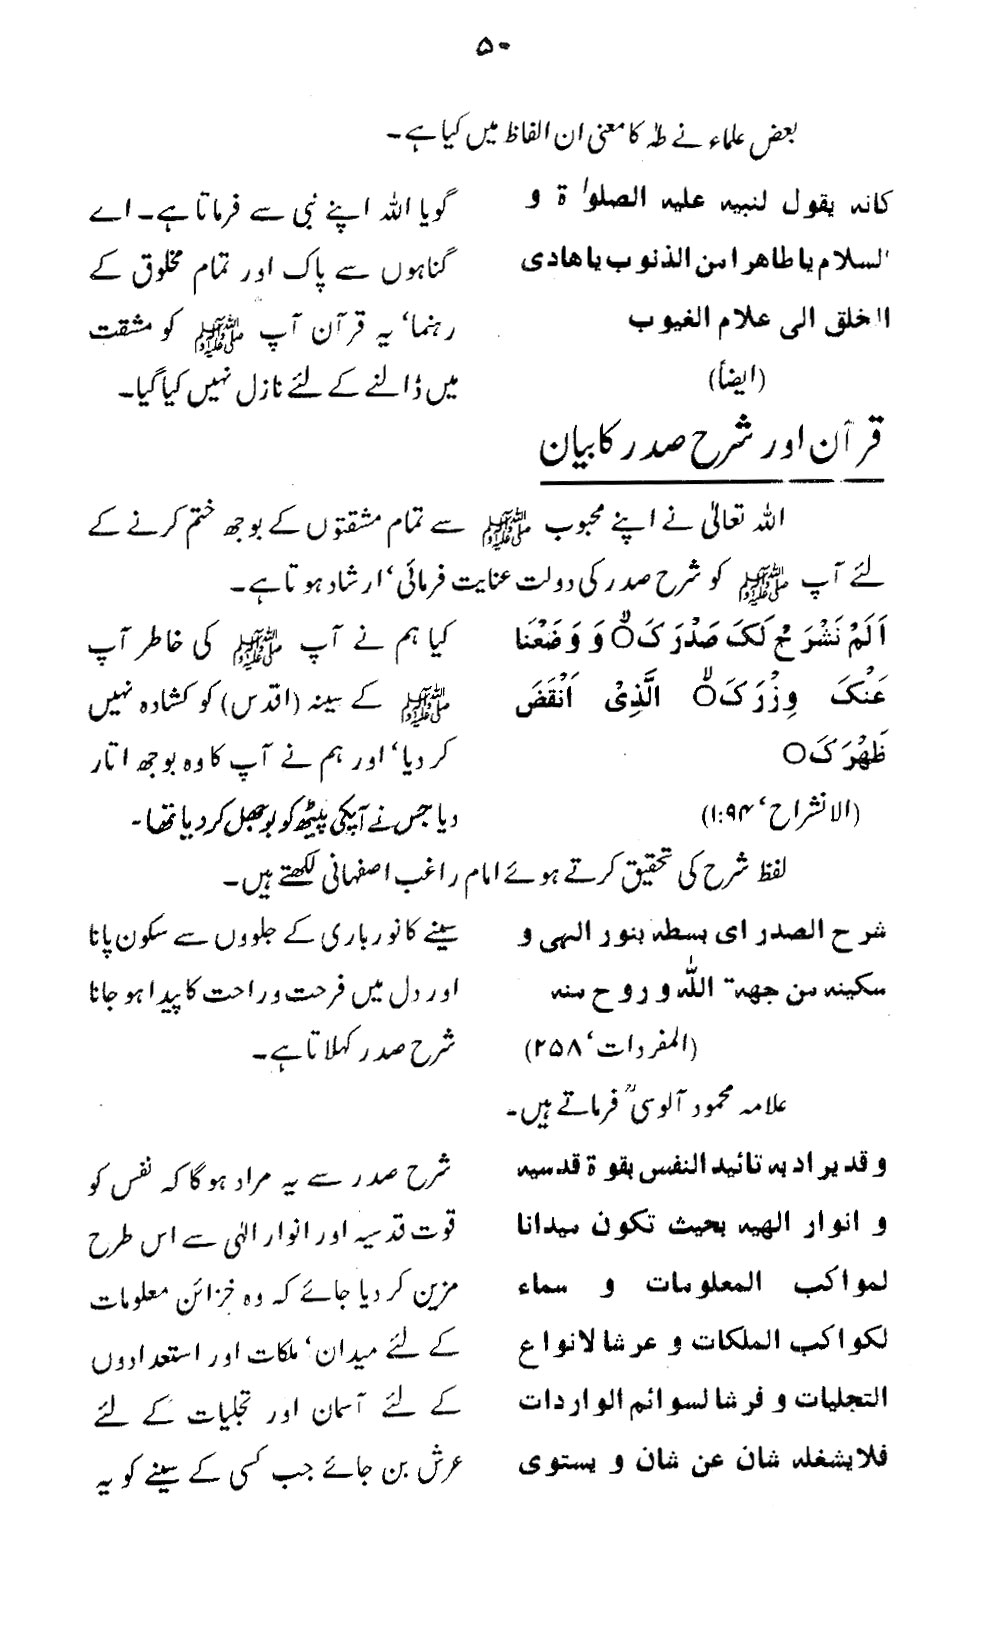 ۵۰
بعض علماء نے طہٰ کا معنی ان الفاظ میں کیا ہے۔
کانہ یقول لنبیہ علیہ الصلوٰۃ و
السلام یا طاهرا من الذنوب یا هادی
الخلق الی علام الغیوب
(ایضاً)
گویا اللہ اپنے نبی سے فرماتا ہے۔ اے
گناہوں سے پاک اور تمام مخلوق کے
رہنما‘ یہ قرآن آپ ﷺ کو مشقت
میں ڈالنے کے لئے نازل نہیں کیا گیا۔
قرآن اور شرح صدر کا بیان
اللہ تعالیٰ نے اپنے محبوب ﷺ سے تمام مشقتوں کے بوجھ ختم کرنے کے
لئے آپ ﷺ کو شرح صدر کی دولت عنایت فرمائی‘ ارشاد ہوتا ہے۔
اَلَمْ نَشْرَحْ لَکَ صَدْرَکَ○ وَ وَضَعْنَا
عَنْکَ وِزْرَکَ○ الَّذِیْ اَنْقَضَ
ظَهْرَکَ○
(الانشراح‘ ۹۴:۱)
کیا ہم نے آپ ﷺ کی خاطر آپ
ﷺ کے سینہ (اقدس) کو کشادہ نہیں
کر دیا‘ اور ہم نے آپ کا وہ بوجھ اتار
دیا جس نے آپکی پیٹھ کو بوجھل کر دیا تھا۔
لفظ شرح کی تحقیق کرتے ہوئے امام راغب اصفہانی لکھتے ہیں۔
شرح الصدر ای بسطه بنور الہی و
سکینه من جهة اللّٰہ و روح منه
(المفردات‘ ۲۵۸)
سینے کا نور باری کے جلووں سے سکون پانا
اور دل میں فرحت و راحت کا پیدا ہو جانا
شرح صدر کہلاتا ہے۔
علامہ محمود آلوسیؒ فرماتے ہیں۔
و قد یراد به تائید النفس بقوة قدسیه
و انوار الهیه بحیث تکون میدانا
لمواکب المعلومات و سماء
لکواکب الملکات و عرشا لانواع
التجلیات و فرشا لسوائم الواردات
فلا یشغله شان عن شان و یستوی
شرح صدر سے یہ مراد ہوگا کہ نفس کو
قوت قدسیہ اور انوار الٰہی سے اس طرح
مزین کر دیا جائے کہ وہ خزائن معلومات
کے لئے میدان‘ ملکات اور استعدادوں
کے لئے آسمان اور تجلیات کے لئے
عرش بن جائے جب کسی کے سینے کو یہ